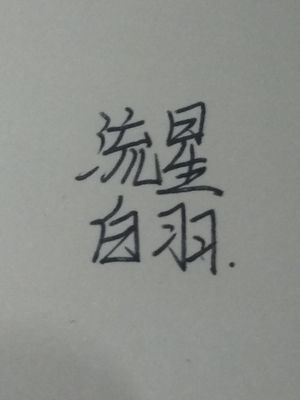 流星
白羽.